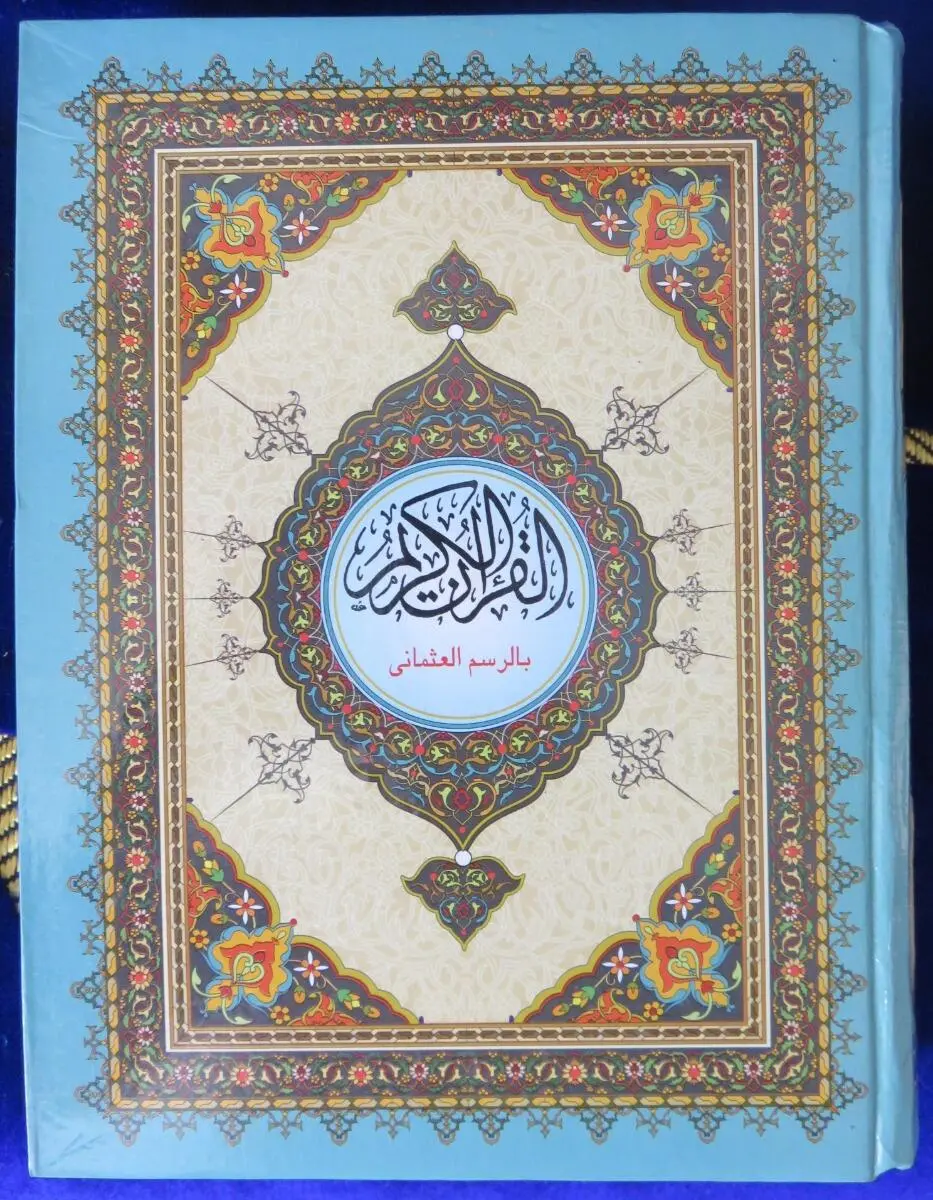 القرآن الكريم
بالرسم العثمانى